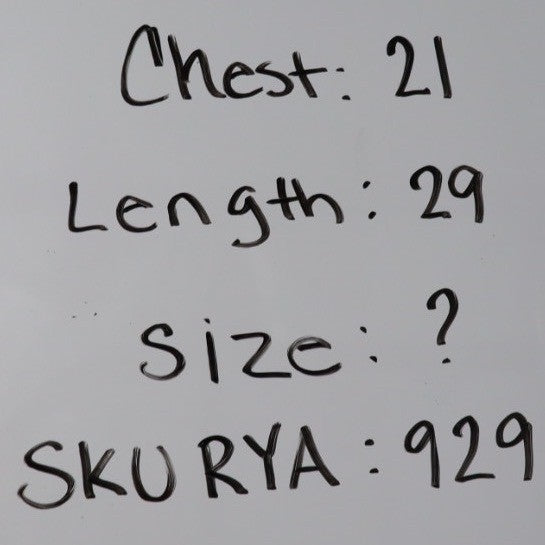 Chest: 21
Length: 29
Size: ?
SKU RYA: 929